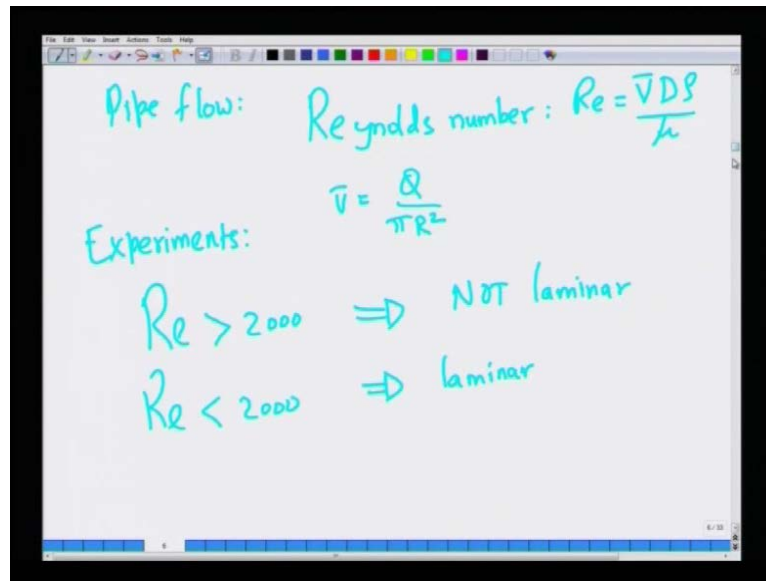 File Edit View Insert Actions Tools Help
Pipe flow: Reynolds number: Re = V̄Dρ/μ
V̄ = Q/πR²
Experiments:
Re > 2000 ⇒ NOT laminar
Re < 2000 ⇒ laminar
6/10
6